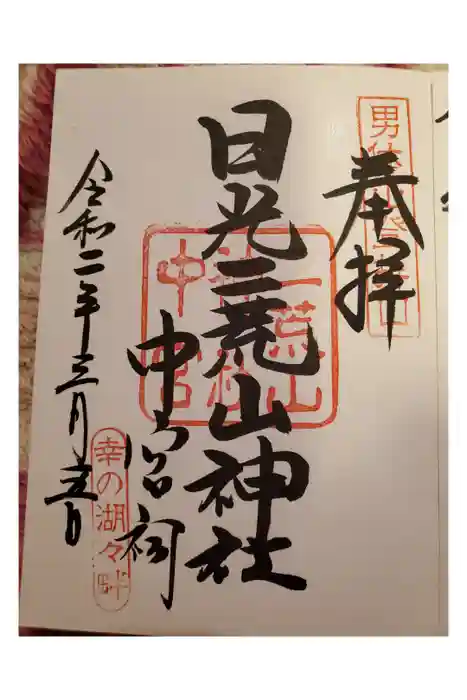 奉拝
日光二荒山神社
中宮祠
令和二年三月五日
二荒山
神社
中宮
幸の湖々畔